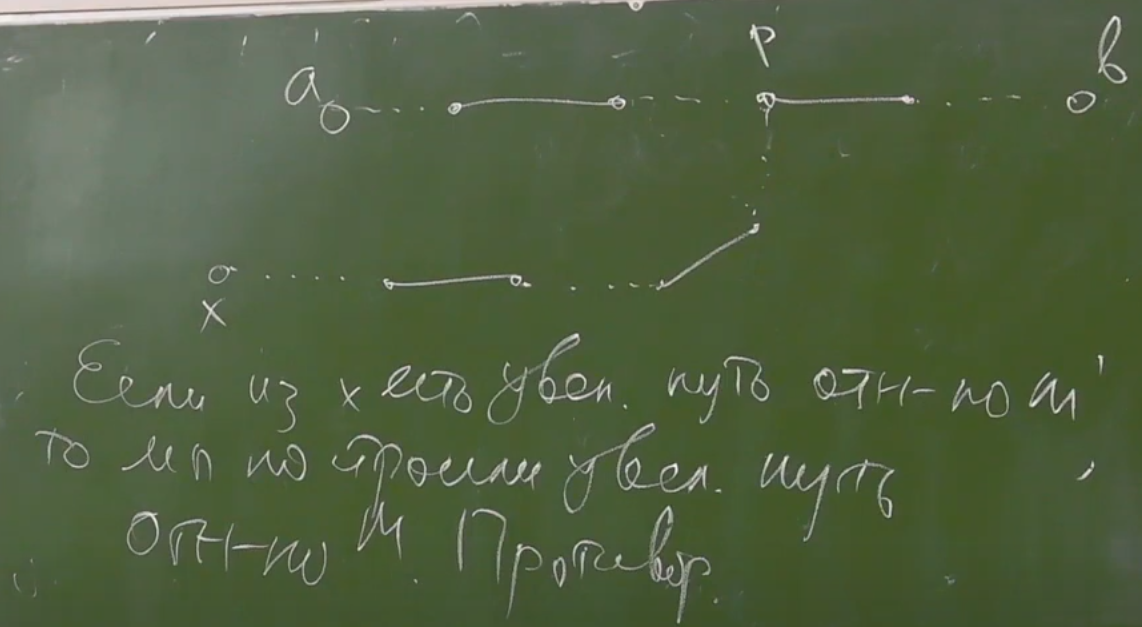 a p b
x
Если из x есть увел. путь отн-но M'
то мы построили увел. путь
отн-но M. Противор.